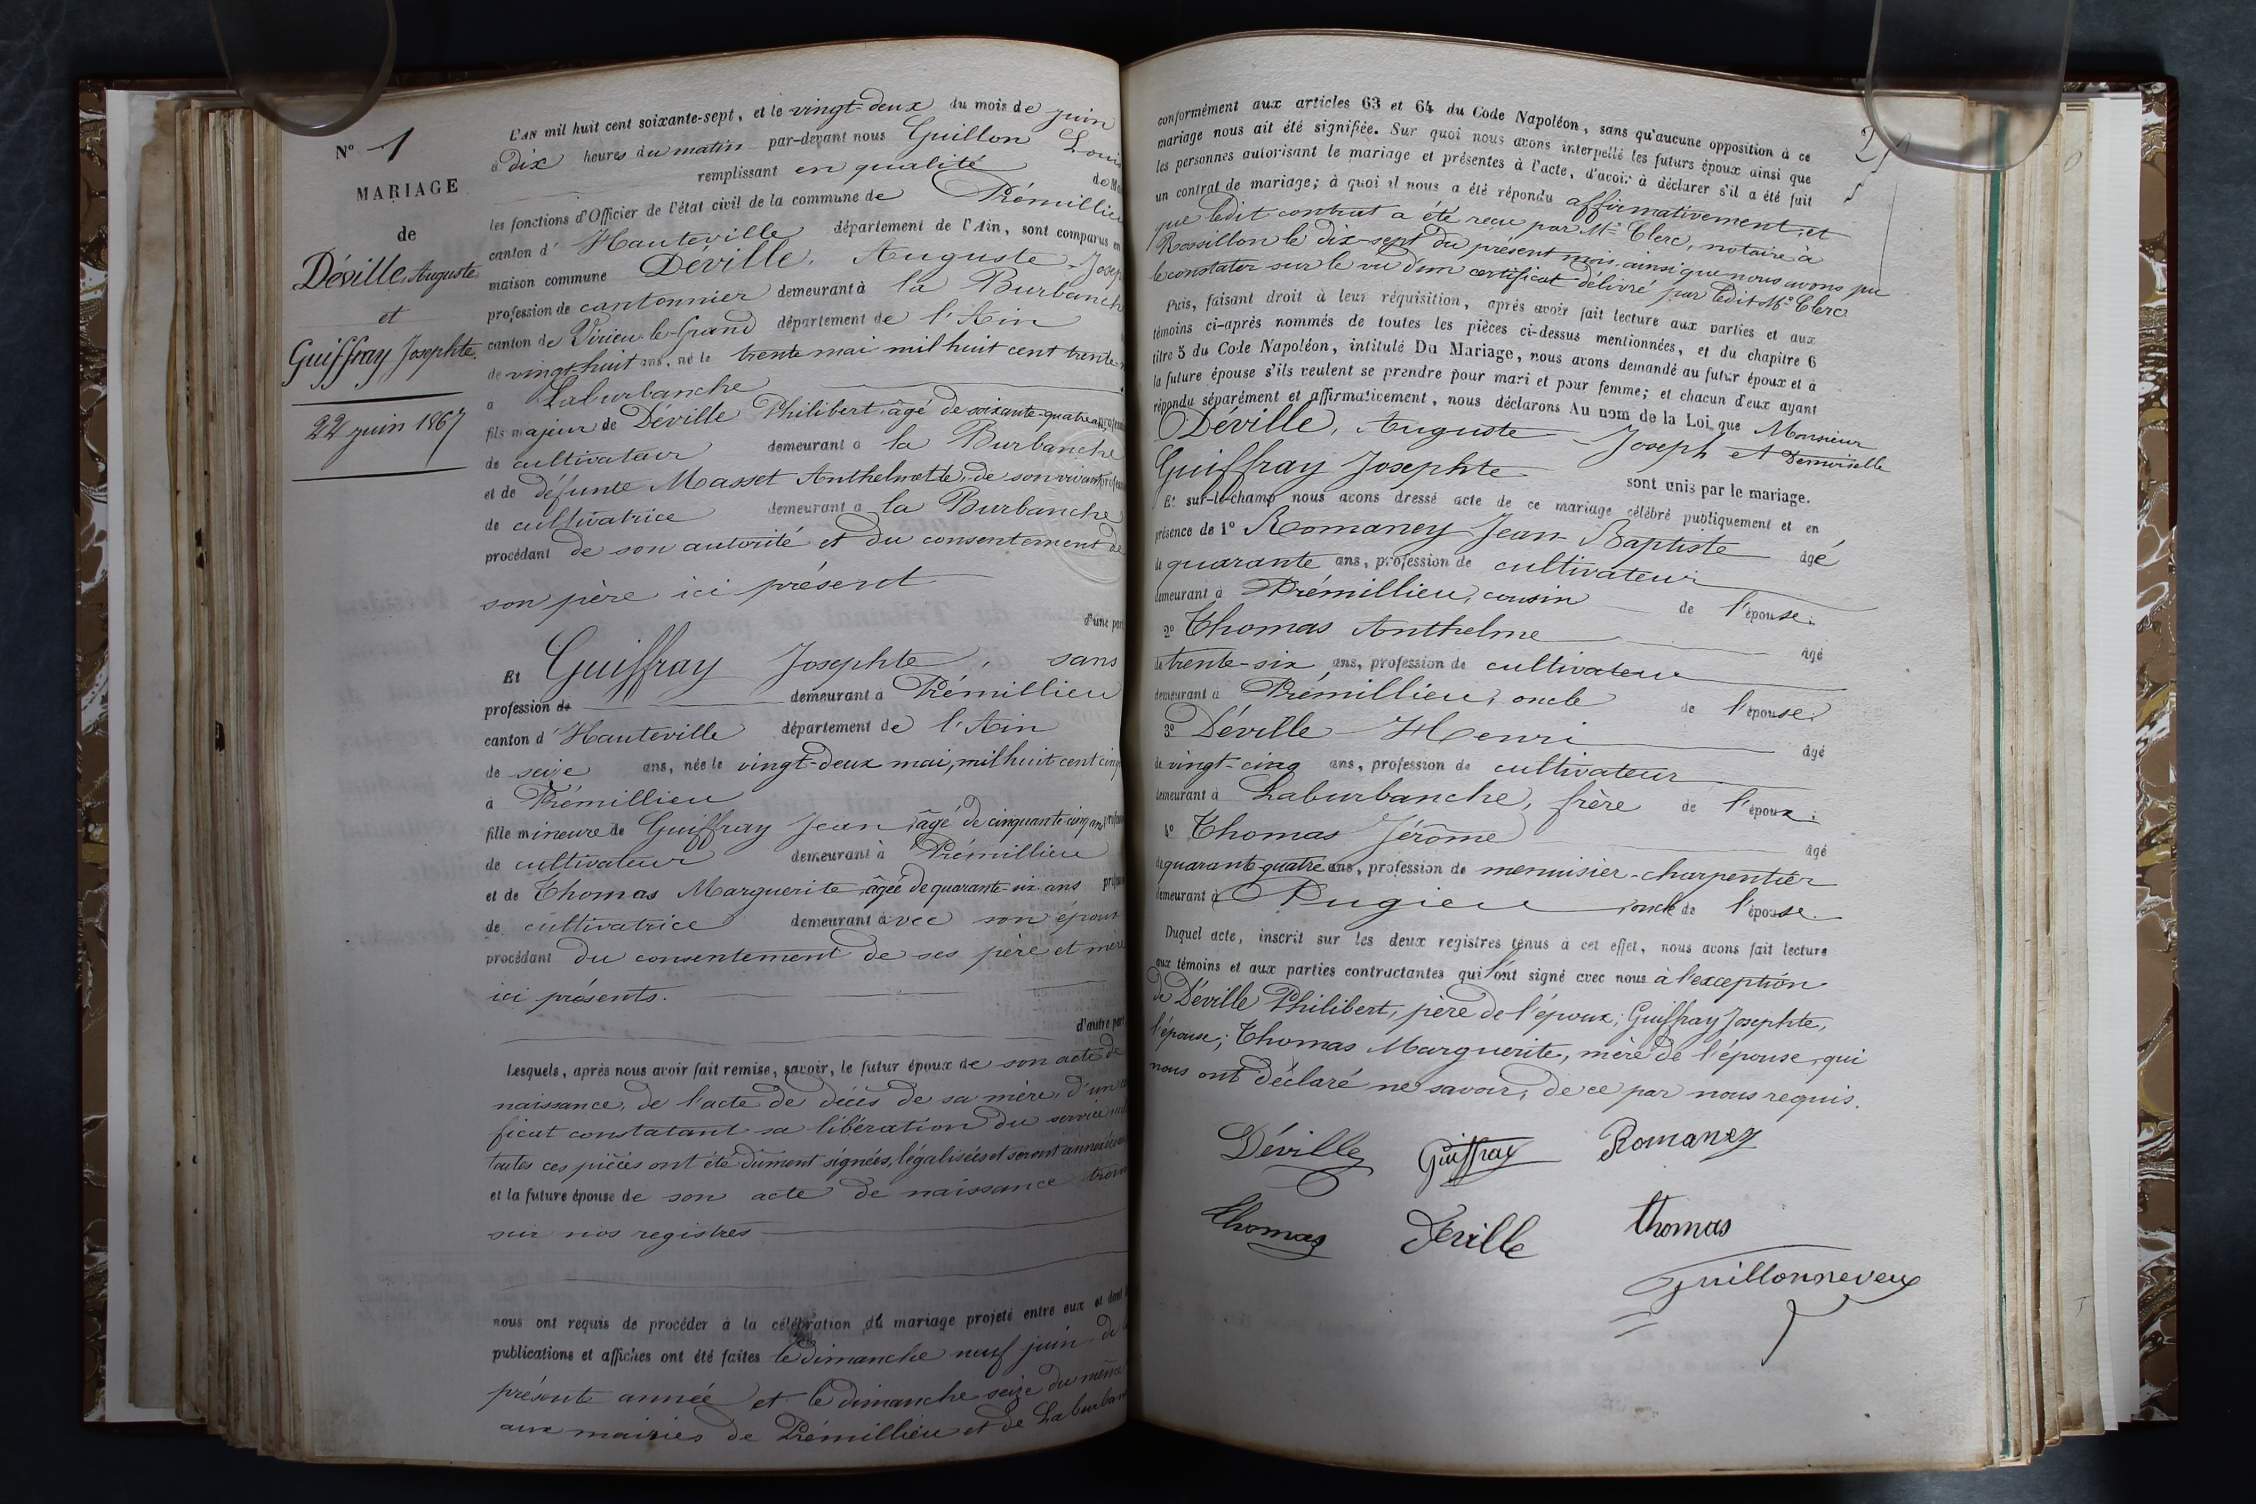 N° 1
MARIAGE
de
Déville, Auguste
et
Guiffray Josephte.
22 juin 1867
L'AN mil huit cent soixante-sept, et le vingt-deux du mois de juin
à dix heures du matin par-devant nous Guillon Louis
remplissant en qualité de
les fonctions d'Officier de l'état civil de la commune de Prémillieu
canton d' Hauteville département de l'Ain, sont comparus en
maison commune Déville, Auguste - Joseph
profession de cantonnier demeurant à la Burbanche
canton de Virieu-le-Grand département de l'Ain
de vingt-huit ans, né le trente mai mil huit cent trente
à Laburbanche
fils majeur de Déville Philibert âgé de soixante-quatre ans
de cultivateur demeurant à la Burbanche
et de défunte Masset Anthelmette, de son vivant
de cultivatrice demeurant à la Burbanche
procédant de son autorité et du consentement de
son père ici présent
d'une part
Et Guiffray Josephte, sans
profession de demeurant à Prémillieu
canton d' Hauteville département de l'Ain
de seize ans, née le vingt-deux mai, mil huit cent
à Prémillieu
fille mineure de Guiffray Jean, âgé de cinquante-cinq ans
de cultivateur demeurant à Prémillieu
et de Thomas Marguerite âgée de quarante-six ans
de cultivatrice demeurant avec son époux
procédant du consentement de ses père et mère
ici présents.
d'autre part
Lesquels, après nous avoir fait remise, savoir, le futur époux de son acte de
naissance, de l'acte de décès de sa mère, d'un
ficat constatant sa libération du service
toutes ces pièces ont été dûment signées, légalisées et seront
et la future épouse de son acte de naissance
sur nos registres
nous ont requis de procéder à la célébration du mariage projeté entre eux et dont
publications et affiches ont été faites le dimanche neuf juin de
présente année et le dimanche seize du même
aux mairies de Prémillieu et de Laburban
conformément aux articles 63 et 64 du Code Napoléon, sans qu'aucune opposition à ce
mariage nous ait été signifiée. Sur quoi nous avons interpellé les futurs époux ainsi que
les personnes autorisant le mariage et présentes à l'acte, d'avoir à déclarer s'il a été fait
un contrat de mariage; à quoi il nous a été répondu affirmativement, et
que ledit contrat a été reçu par Me Clerc, notaire à
Rossillon le dix-sept du présent mois, ainsi que nous avons pu
le constater sur le vu d'un certificat délivré par ledit Me Clerc
Puis, faisant droit à leur réquisition, après avoir fait lecture aux parties et aux
témoins ci-après nommés de toutes les pièces ci-dessus mentionnées, et du chapitre 6
titre 5 du Code Napoléon, intitulé Du Mariage, nous avons demandé au futur époux et à
la future épouse s'ils veulent se prendre pour mari et pour femme; et chacun d'eux ayant
répondu séparément et affirmativement, nous déclarons Au nom de la Loi que Monsieur
Déville, Auguste - Joseph et Demoiselle
Guiffray Josephte sont unis par le mariage.
Et sur-le-champ nous avons dressé acte de ce mariage célébré publiquement et en
présence de 1° Romaney Jean-Baptiste âgé
de quarante ans, profession de cultivateur
demeurant à Prémillieu, cousin de l'épouse.
2° Thomas Anthelme âgé
de trente-six ans, profession de cultivateur
demeurant à Prémillieu, oncle de l'épouse.
3° Déville Henri âgé
de vingt-cinq ans, profession de cultivateur
demeurant à Laburbanche, frère de l'époux.
4° Thomas Jérôme âgé
de quarante-quatre ans, profession de menuisier-charpentier
demeurant à Pugieu, oncle de l'épouse.
Duquel acte, inscrit sur les deux registres tenus à cet effet, nous avons fait lecture
aux témoins et aux parties contractantes qui l'ont signé avec nous à l'exception
de Déville Philibert, père de l'époux; Guiffray Josephte,
l'épouse; Thomas Marguerite, mère de l'épouse, qui
nous ont déclaré ne savoir, de ce par nous requis.
Déville Guiffray Romaney
Thomas Deville thomas
Guillonneveux